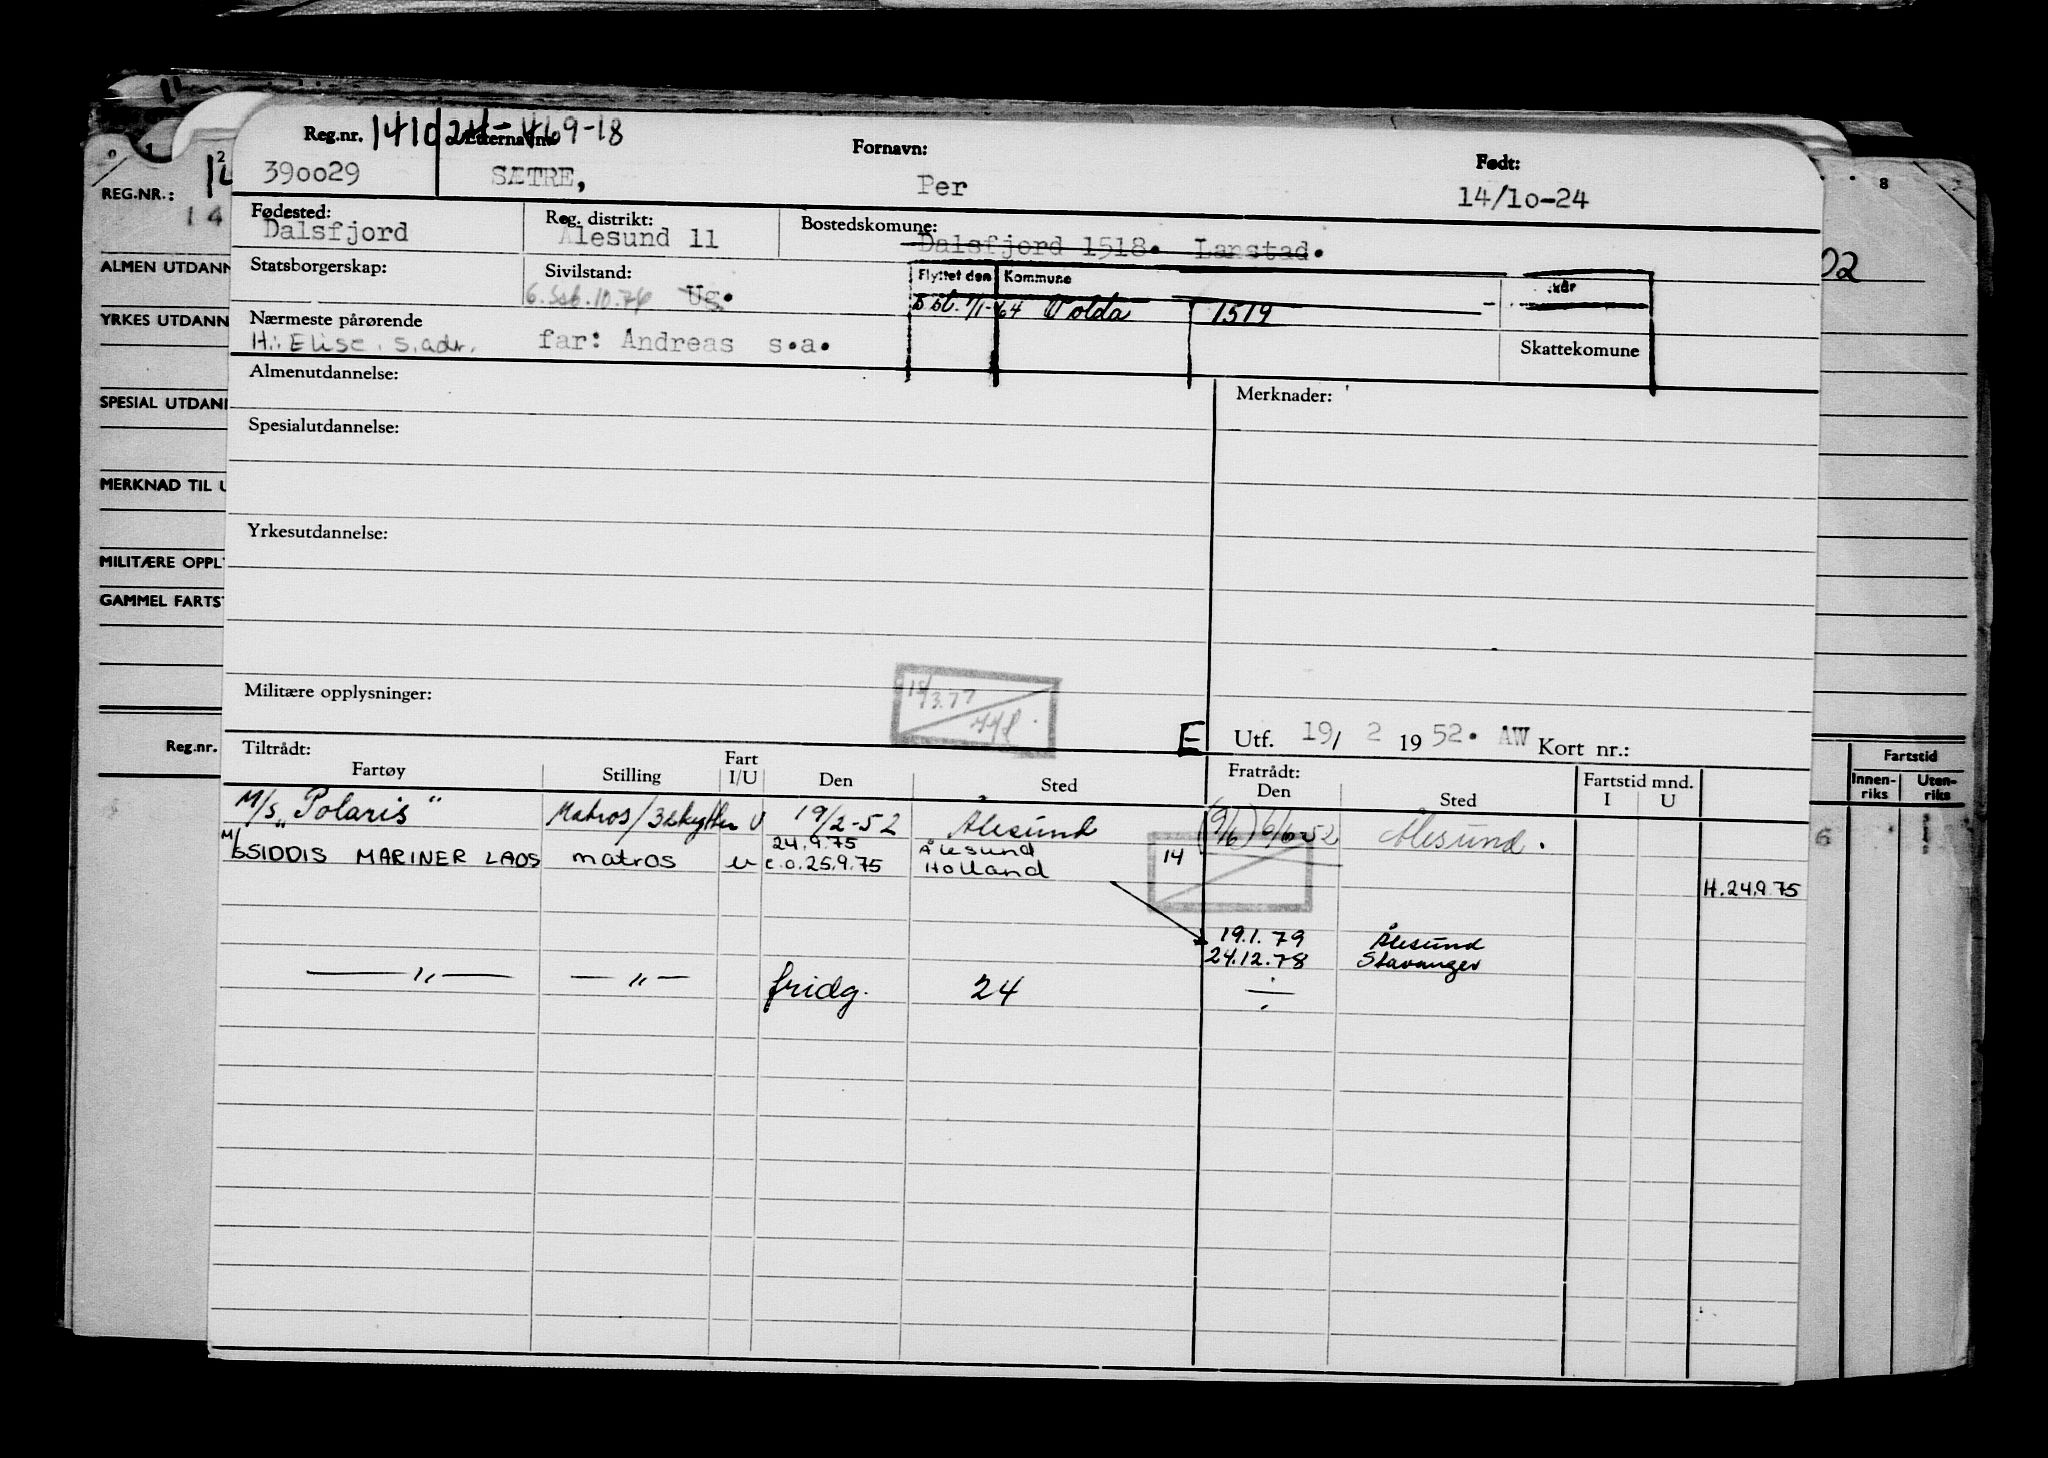 Reg.nr. 141024-469-18 Etternavn: Fornavn: Født:
390029 SÆTRE, Per 14/10-24
Fødested: Reg. distrikt: Bostedskomune:
Dalsfjord Ålesund 11 Dalsfjord 1518. Lanstad.
Statsborgerskap: Sivilstand: Flyttet den Kommune
Ug. 7/1-64 Volda 1519
Nærmeste pårørende
H: Elise. s.adr. far: Andreas s.a. Skattekomune
Almenutdannelse: Merknader:
Spesialutdannelse:
Yrkesutdannelse:
Militære opplysninger:
E Utf. 19/ 2 1952. AW Kort nr.:
Tiltrådt: Fratrådt: Fartstid mnd.
Fartøy Stilling Fart I/U Den Sted Den Sted I U
M/s "Polaris" Matros/ U 19/2-52 Ålesund (9/6) 6/6-52 Ålesund.
M/S SIDDIS MARINER LAOS matros u 24.9.75 Ålesund 14
c.o. 25.9.75 Holland
H. 24.9.75
19.1.79 Ålesund
24.12.78 Stavanger
— " — — " — fridg. 24 ÷
REG.NR.: 14
ALMEN UTDANN 02
YRKES UTDANN
SPESIAL UTDANN
MERKNAD TIL U
MILITÆRE OPPL
GAMMEL FARTST
Reg.nr. Fartstid
Innen-riks Uten-riks
8
6